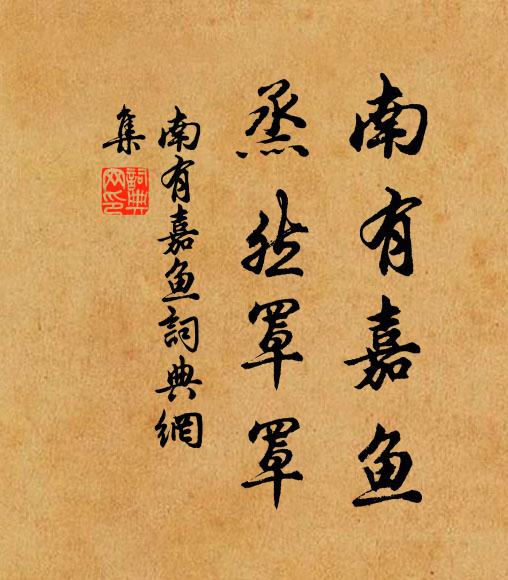 南有嘉魚
烝然罩罩
南有嘉魚詞典網
集
詞典
网印